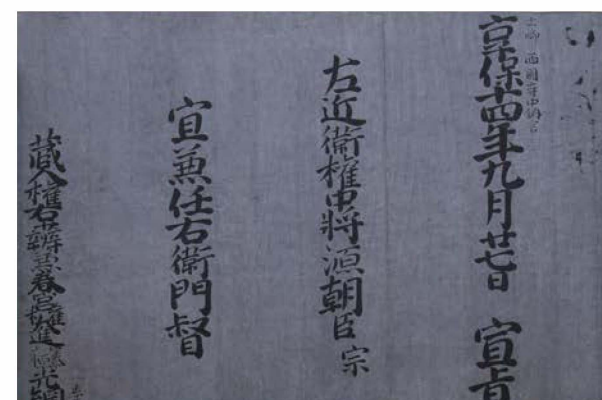 上卿 西園寺中納言
享保十四年九月廿七日 宣旨
右近衛權中將源朝臣 宗
宜兼任右衛門督
藏人權右中辨兼春宮權大進藤原光綱